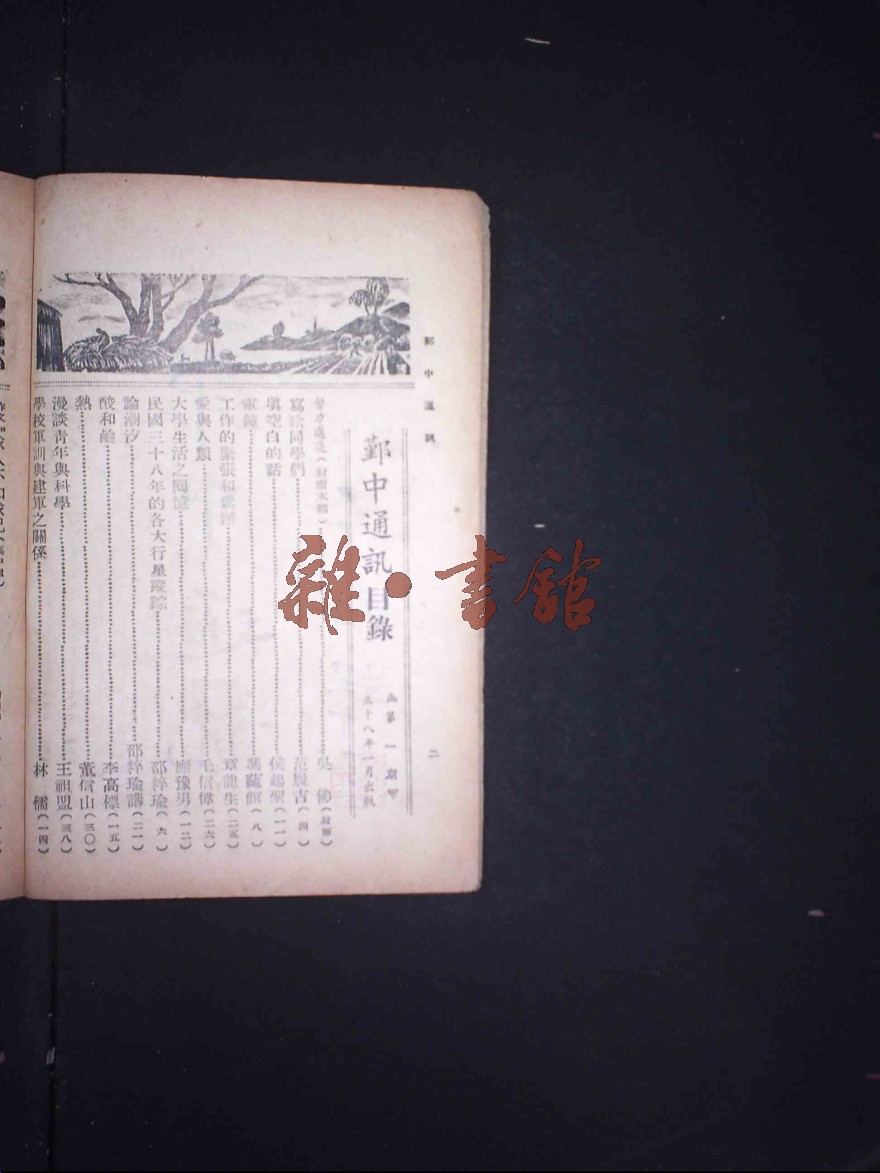 鄞中通訊
二
鄞中通訊目錄
第一期
三十八年一月出版
努力邁進(封面木刻)……吳
寫給同學們……范履吉(四)
填空白的話……侯起聖(一一)
軍鐘……馮蘊館(八)
工作的緊張和……章龍生(二五)
愛與人類……毛信偉(二六)
大學生活之回憶……應豫男(一二)
民國三十八年的各大行星蹤跡……邵梓瑜(六)
論潮汐……邵梓瑜譯(二一)
酸和鹼……李高標(一五)
熱……董信山(三〇)
漫談青年與科學……王祖盟(三八)
學校軍訓與建軍之關係……林儒(一四)
雜·書館